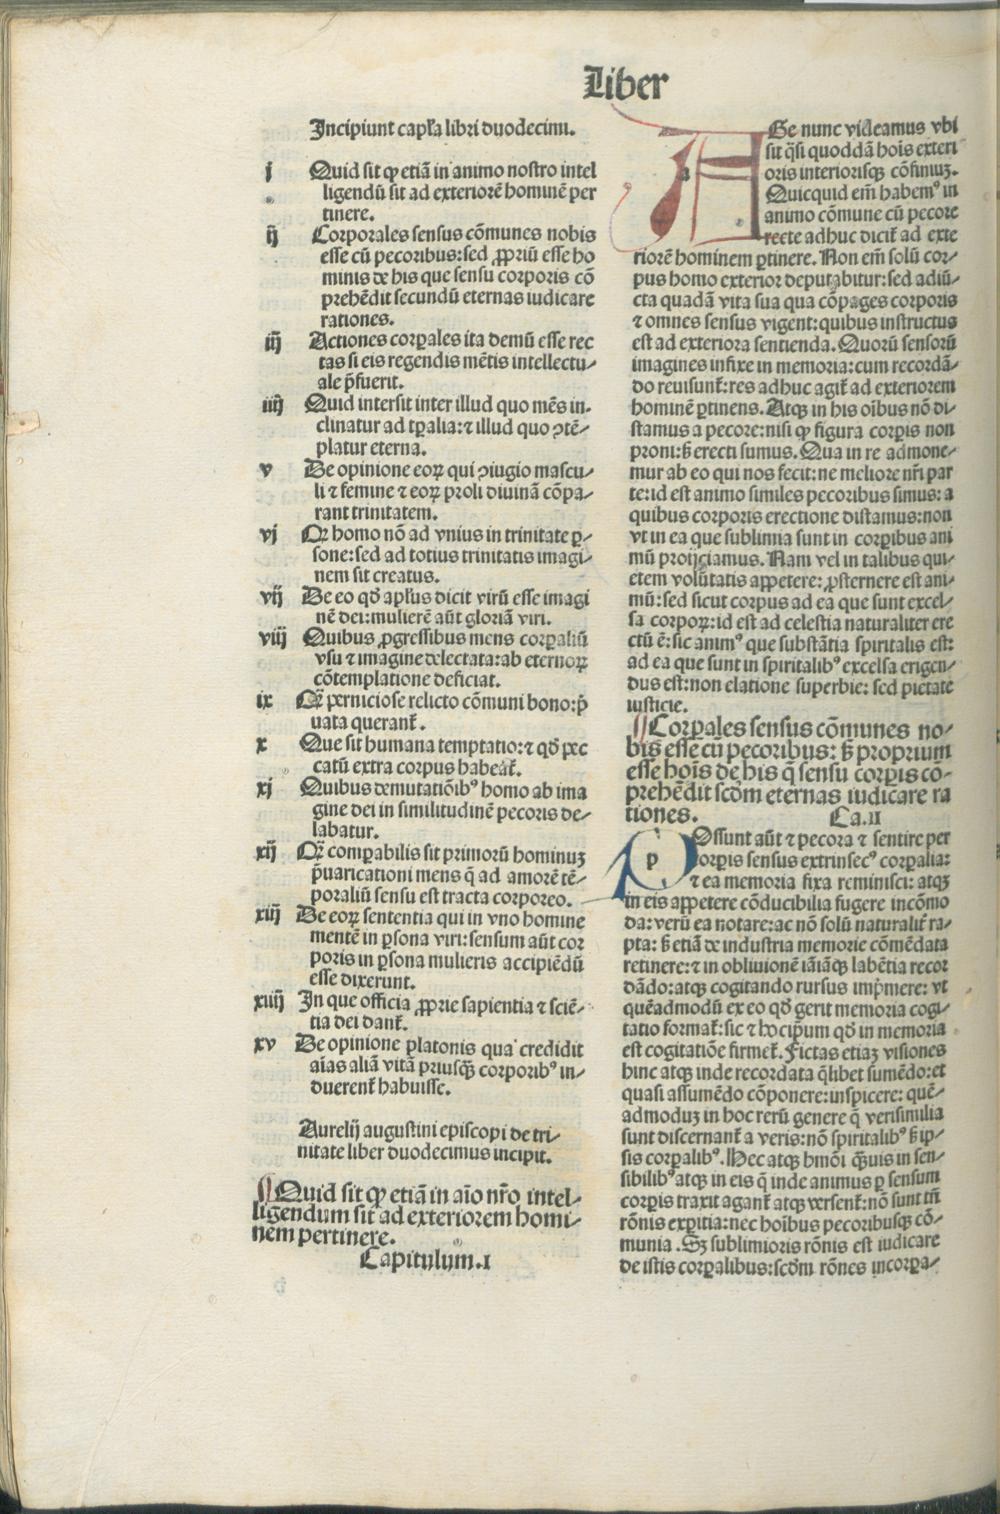 Liber
Incipiunt capl'a libri duodecimi.
j Quid sit ꝙ etiã in animo nostro intel
ligendũ sit ad exteriorẽ hominẽ per
tinere.
ij Corporales sensus cõmunes nobis
esse cũ pecoribus:sed ꝓpriũ esse ho
minis de his que sensu corporis cõ
prehẽdit secundũ eternas iudicare
rationes.
iij Actiones corꝑales ita demũ esse rec
tas si eis regendis mẽtis intellectu⸗
ale p̃fuerit.
iiij Quid intersit inter illud quo mẽs in⸗
clinatur ad tꝑalia:⁊ illud quo ꝯtẽ⸗
platur eterna.
v De opinione eoꝝ qui ꝯiugio mascu⸗
li ⁊ femine ⁊ eoꝝ proli diuinã cõpa⸗
rant trinitatem.
vj Qꝛ homo nõ ad vnius in trinitate ꝑ⸗
sone:sed ad totius trinitatis imagi⸗
nem sit creatus.
vij De eo qd̃ apl'us dicit virũ esse imagi
nẽ dei:mulierẽ aũt gloriã viri.
viij Quibus ꝓgressibus mens corꝑaliũ
vsu ⁊ imagine delectata:ab eternoꝝ
cõtemplatione deficiat.
ix Qꝛ perniciose relicto cõmuni bono:p̃
uata querant᷑.
x Que sit humana temptatio:⁊ qd̃ pec
catũ extra corpus habeat᷑.
xj Quibus demutatiõibꝰ homo ab ima
gine dei in similitudinẽ pecoris de⸗
labatur.
xij Qꝛ comꝑabilis sit primorũ hominuꝫ
p̃uaricationi mens q̃ ad amorẽ tẽ⸗
poraliũ sensu est tracta corporeo.
xiij De eoꝝ sententia qui in vno homine
mentẽ in ꝑsona viri:sensum aũt cor
poris in ꝑsona mulieris accipiẽdũ
esse dixerunt.
xiiij In que officia ꝓprie sapientia ⁊ sciẽ⸗
tia dei dant᷑.
xv De opinione platonis qua credidit
aĩas aliã vitã priusꝗ̃ corporibꝰ in⸗
duerent᷑ habuisse.
Aurelij augustini episcopi de tri⸗
nitate liber duodecimus incipit.
¶ Quid sit ꝙ etiã in aĩo nr̃o intel⸗
ligendum sit ad exteriorem homi⸗
nem pertinere.
Capitulum.I
AGe nunc videamus vbi
sit q̃si quoddã hoĩs exteri
oris interiorisqꝫ cõfiniuꝫ.
Quicquid em̃ habemꝰ in
animo cõmune cũ pecore
recte adhuc dicit᷑ ad exte
riorẽ hominem ꝑtinere. Non em̃ solũ cor⸗
pus homo exterior deputabitur:sed adiũ⸗
cta quadã vita sua qua cõpages corporis
⁊ omnes sensus vigent:quibus instructus
est ad exteriora sentienda. Quorũ sensorũ
imagines infixe in memoria:cum recordã⸗
do reuisunt᷑:res adhuc agit᷑ ad exteriorem
hominẽ ꝑtinens. Atqꝫ in his oĩbus nõ di⸗
stamus a pecore:nisi ꝙ figura corꝑis non
proni:ẞ erecti sumus. Qua in re admone⸗
mur ab eo qui nos fecit:ne meliore nr̃i par
te:id est animo similes pecoribus simus: a
quibus corporis erectione distamus:non
vt in ea que sublimia sunt in corꝑibus ani
mũ proijciamus. Nam vel in talibus qui⸗
etem volũtatis appetere: ꝓsternere est ani⸗
mũ:sed sicut corpus ad ea que sunt excel⸗
sa corpoꝝ:id est ad celestia naturaliter ere
ctũ ẽ:sic animꝰ que substãtia spiritalis est:
ad ea que sunt in spiritalibꝰ excelsa erigen⸗
dus est:non elatione superbie: sed pietate
iusticie.
¶ Corꝑales sensus cõmunes no⸗
bis esse cũ pecoribus: ẞ proprium
esse hoĩs de his q̃ sensu corꝑis cõ⸗
prehẽdit scd̃m eternas iudicare ra
tiones. Ca.II
POssunt aũt ⁊ pecora ⁊ sentire per
corꝑis sensus extrinsecꝰ corꝑalia:
⁊ ea memoria fixa reminisci: atqꝫ
in eis appetere cõducibilia fugere incõmo
da:verũ ea notare:ac nõ solũ naturalit᷑ ra⸗
pta: ẞ etiã de industria memorie cõmẽdata
retinere:⁊ in obliuionẽ iãiãqꝫ labẽtia recor
dãdo:atqꝫ cogitando rursus imp̃mere: vt
quẽadmodũ ex eo qd̃ gerit memoria cogi⸗
tatio format᷑:sic ⁊ hocip̃um qd̃ in memoria
est cogitatiõe firmet᷑. Fictas etiaꝫ visiones
hinc atqꝫ inde recordata q̃libet sumẽdo:et
quasi assumẽdo cõponere:inspicere: quẽ⸗
admoduꝫ in hoc rerũ genere q̃ verisimilia
sunt discernant᷑ a veris:nõ spiritalibꝰ ẞ ip⸗
sis corꝑalibꝰ. Hec atqꝫ hmõi ꝗ̃uis in sen⸗
sibilibꝰ atqꝫ in eis q̃ inde animus ꝑ sensum
corꝑis traxit agant᷑ atqꝫ versent᷑:nõ sunt tñ
rõnis exꝑtia:nec hoĩbus pecoribusqꝫ cõ⸗
munia. Sꝫ sublimioris rõnis est iudicare
de istis corꝑalibus:scd̃m rõnes incorꝑa⸗